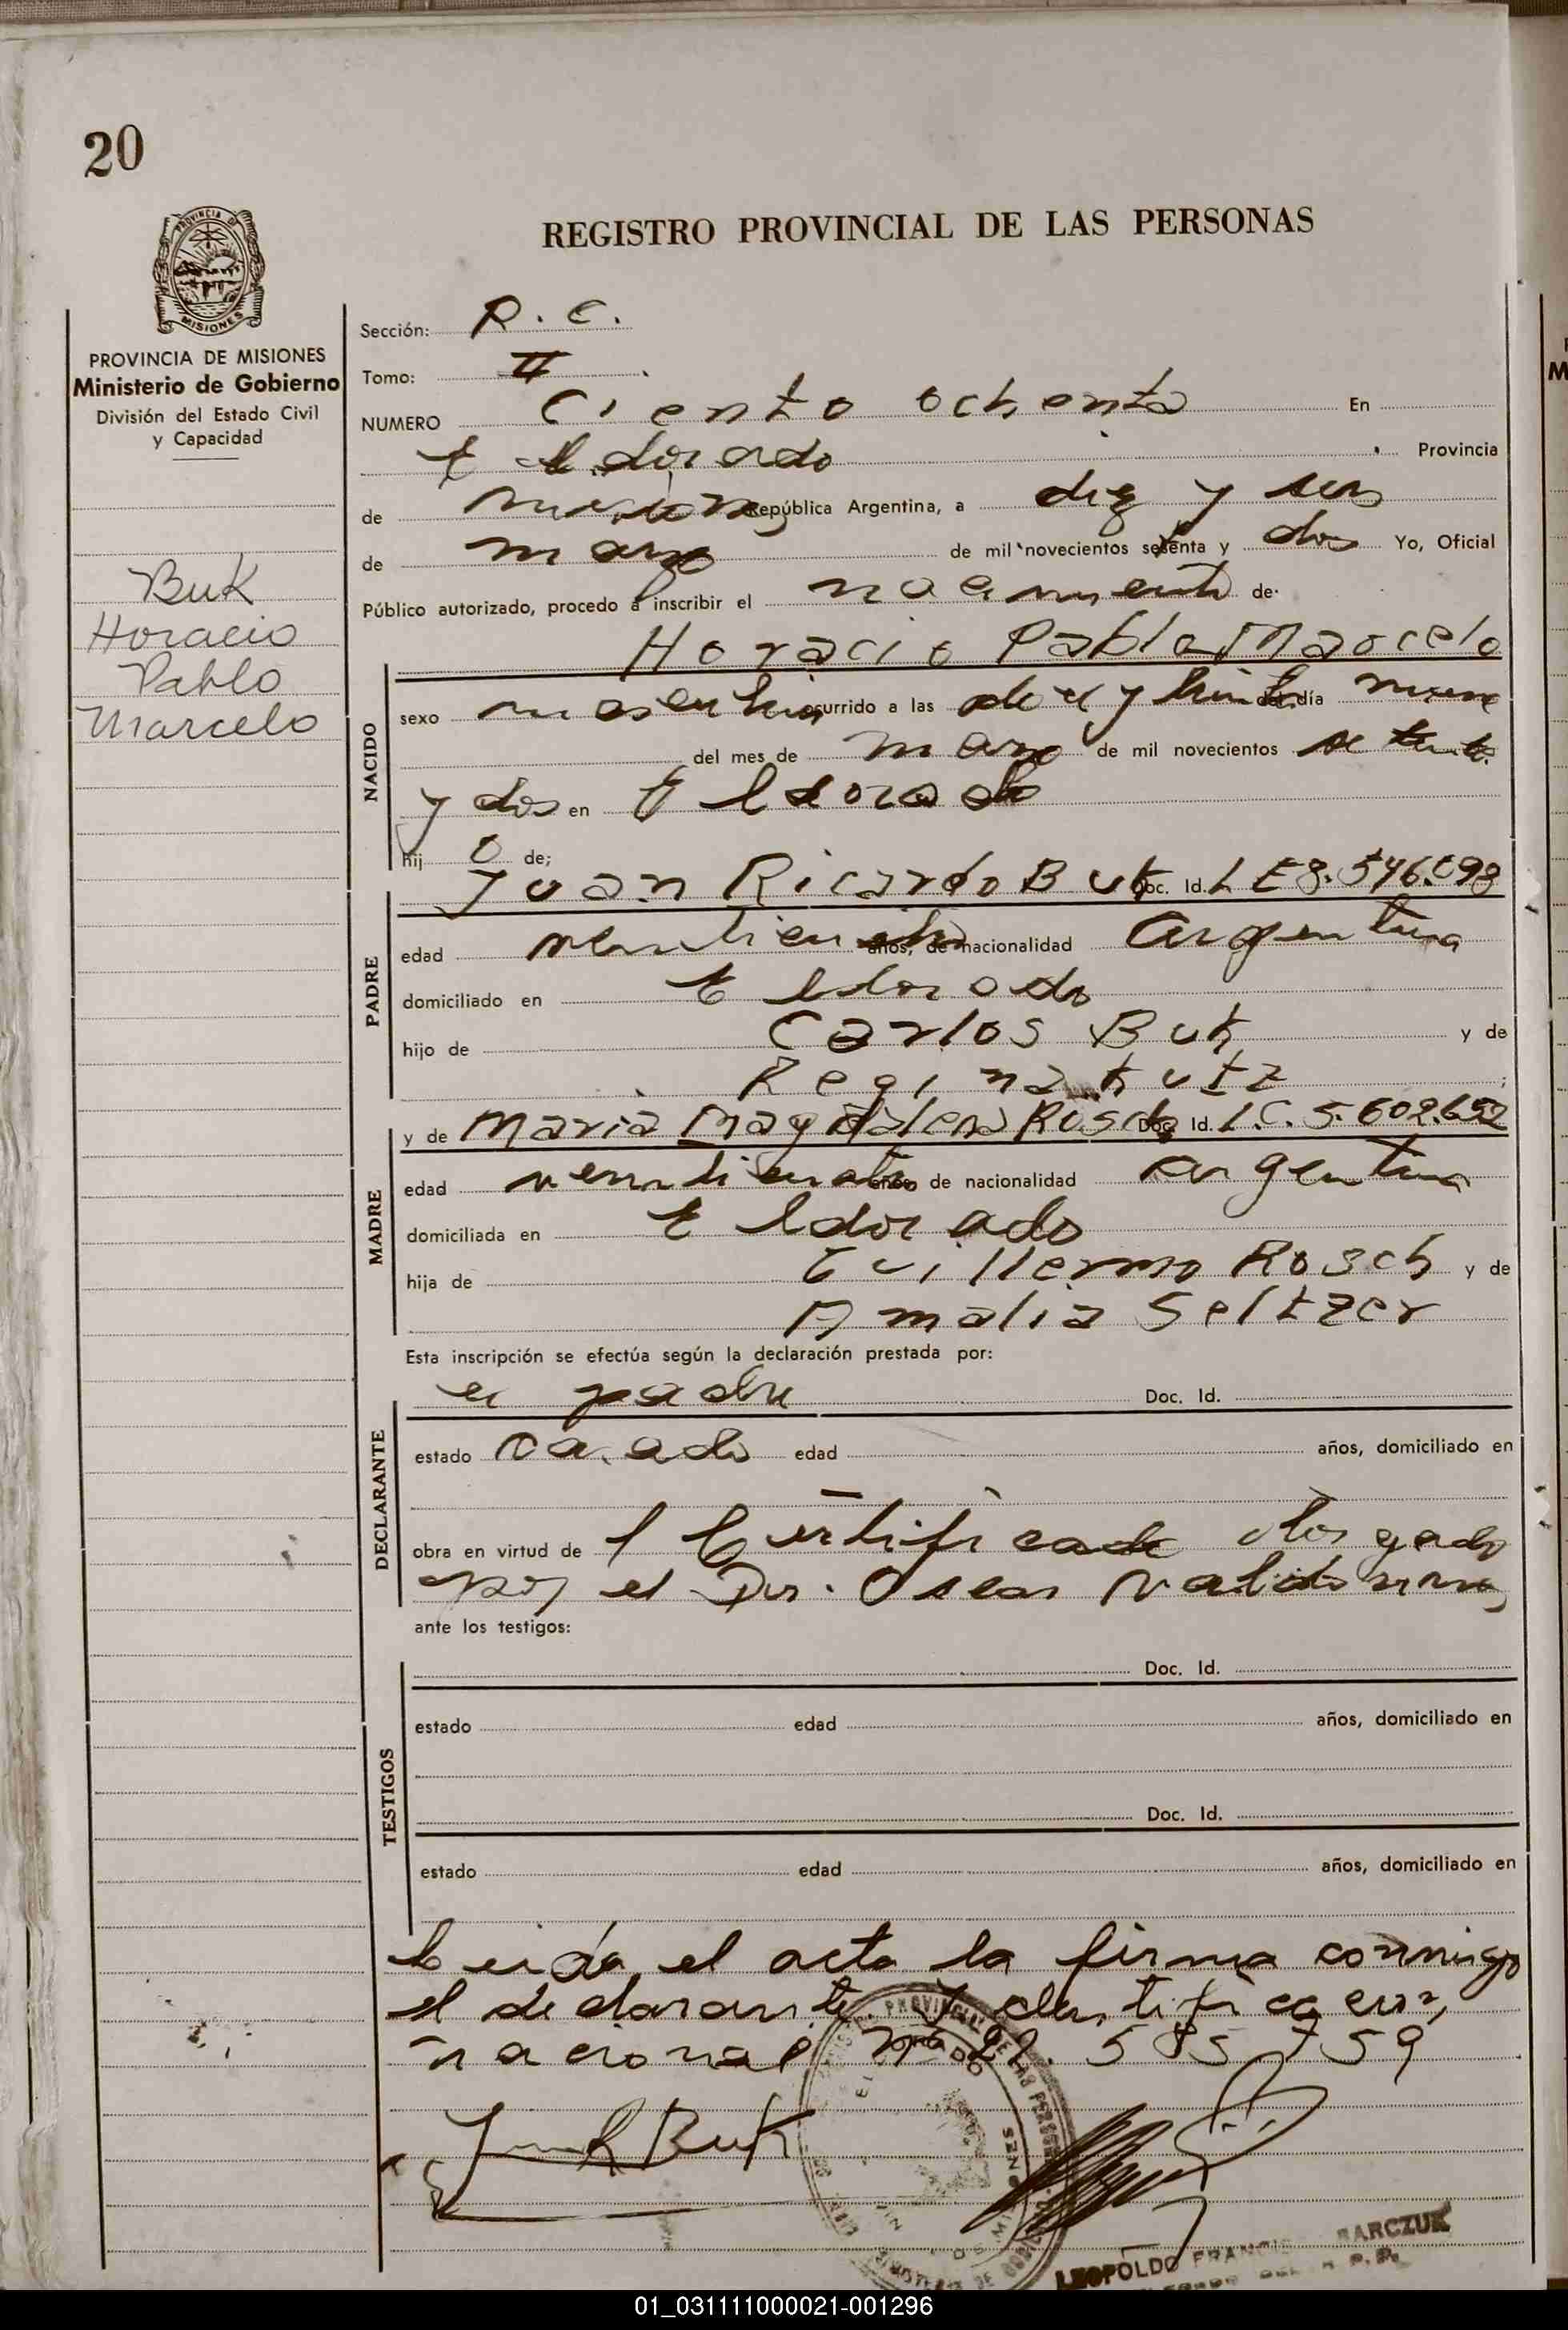 20
REGISTRO PROVINCIAL DE LAS PERSONAS
PROVINCIA DE MISIONES
Ministerio de Gobierno
División del Estado Civil
y Capacidad
Buk
Horacio
Pablo
Marcelo
Sección: R. C.
Tomo: II
NUMERO Ciento ochenta En
Eldorado Provincia
de Misiones República Argentina, a diez y seis
de marzo de mil novecientos setenta y dos Yo, Oficial
Público autorizado, procedo a inscribir el nacimiento de
Horacio Pablo Marcelo
NACIDO
sexo masculino ocurrido a las doce y treinta del día nueve
del mes de marzo de mil novecientos setenta
y dos en Eldorado
hij o de;
Juan Ricardo Buk Doc. Id. L E 8.546.098
PADRE
edad veinticuatro años, de nacionalidad Argentina
domiciliado en Eldorado
hijo de Carlos Buk y de
Regina Kutz
y de Maria Magdalena Rosch Doc. Id. L.C. 5.602.652
MADRE
edad veinticuatro años de nacionalidad argentina
domiciliada en Eldorado
hija de Guillermo Rosch y de
Amalia Seltzer
Esta inscripción se efectúa según la declaración prestada por:
el padre Doc. Id.
DECLARANTE
estado casado edad años, domiciliado en
obra en virtud de l Certificado otorgado
por el Dr. Oscar
ante los testigos:
Doc. Id.
TESTIGOS
estado edad años, domiciliado en
Doc. Id.
estado edad años, domiciliado en
Leida el acta la firma conmigo
el declarante Identificacion
nacional Nº 22. 585 759
Juan R Buk
LEOPOLDO BARCZUK
01_031111000021-001296